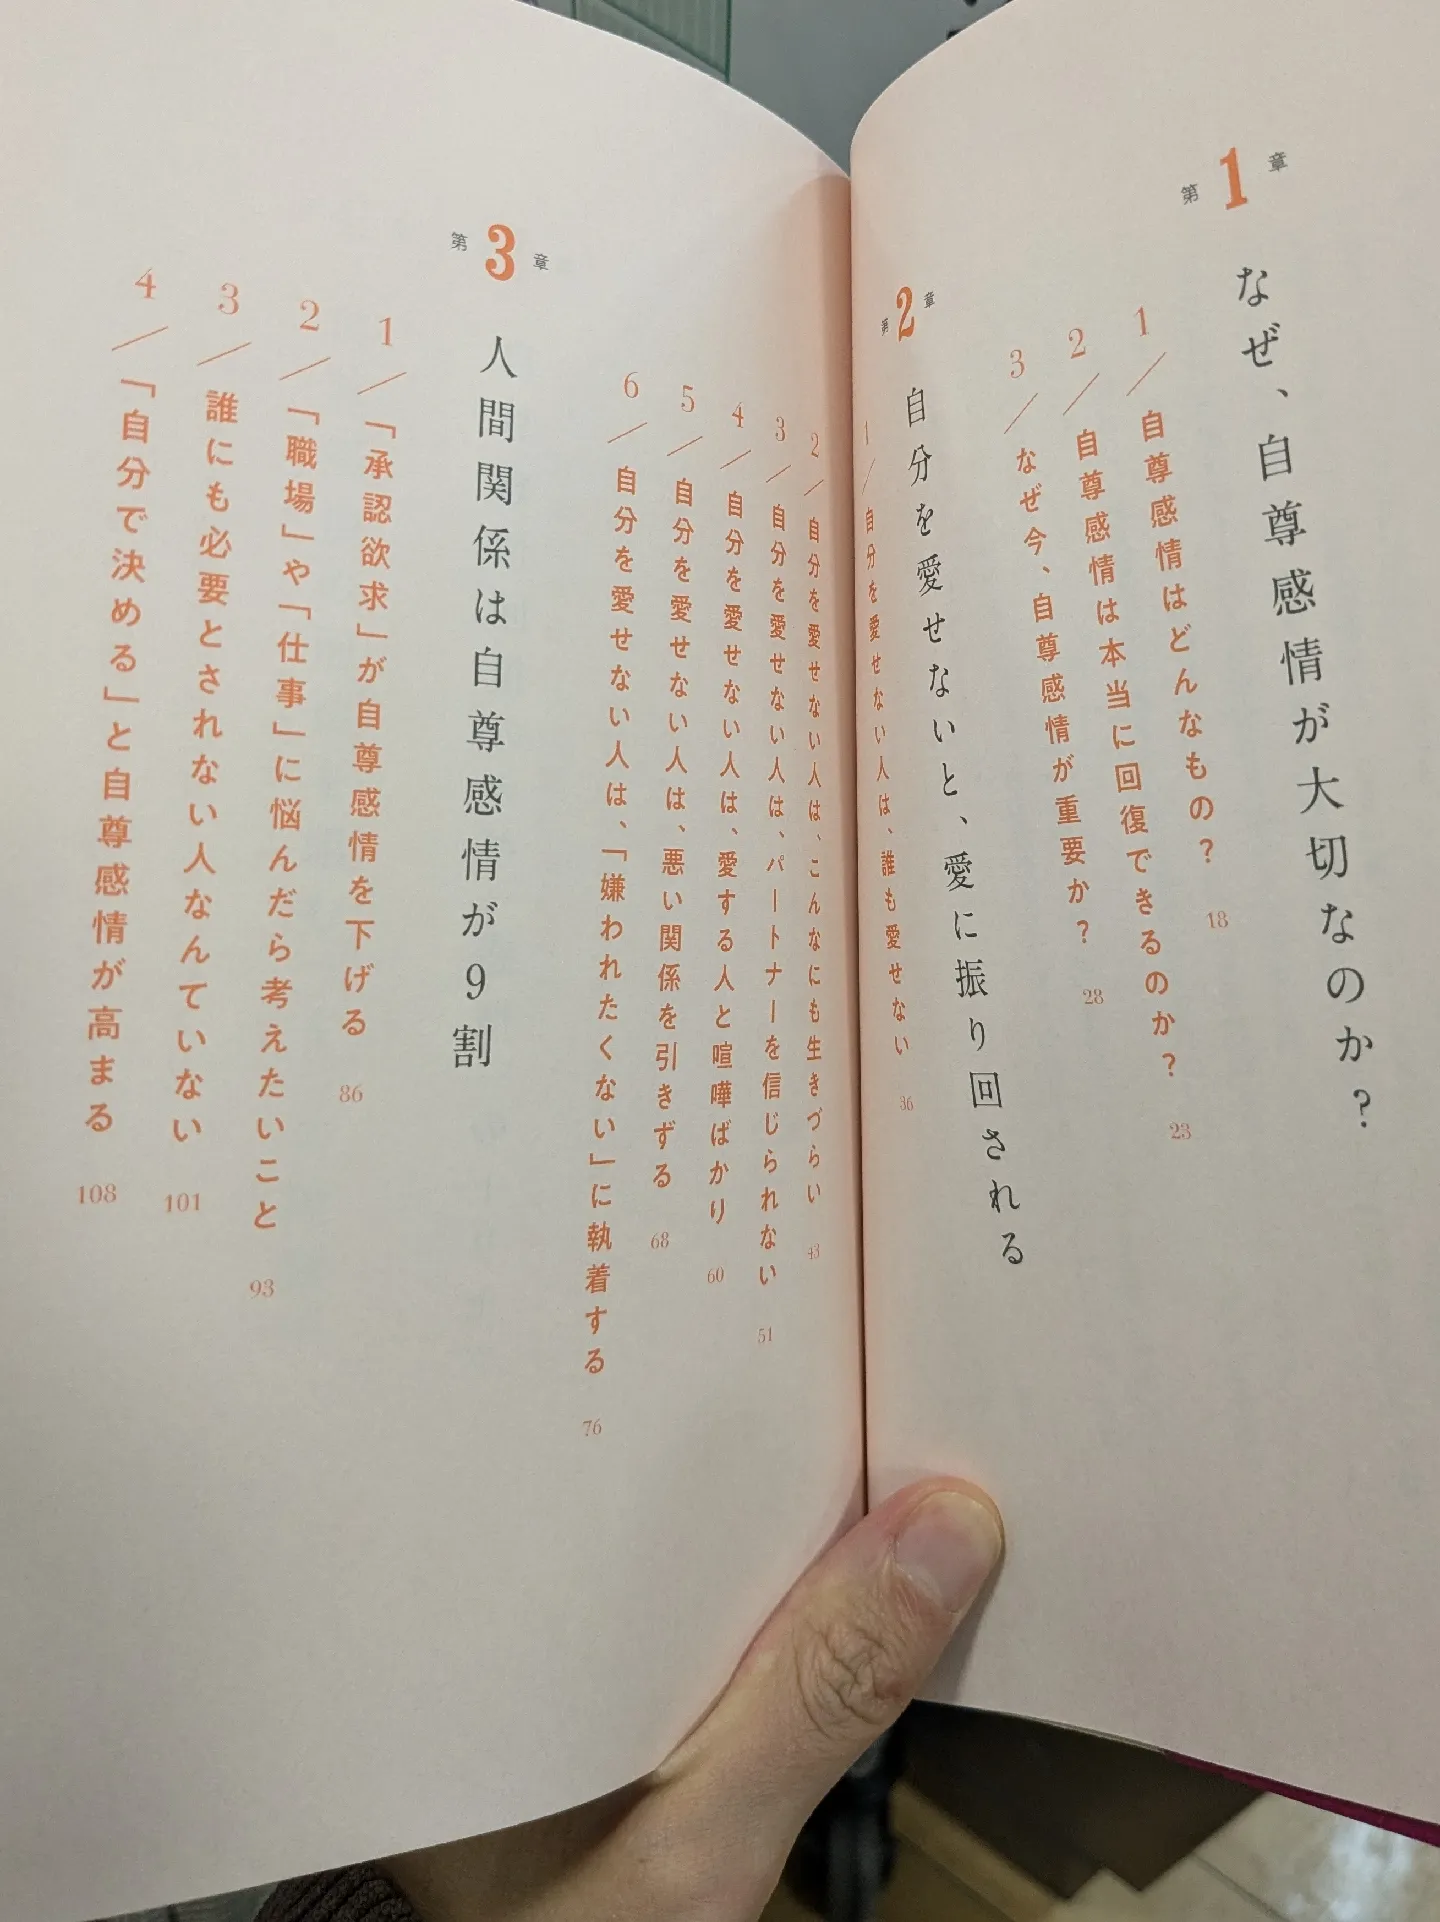 第1章
なぜ、自尊感情が大切なのか?
1/自尊感情はどんなもの? 18
2/自尊感情は本当に回復できるのか? 23
3/なぜ今、自尊感情が重要か? 28
第2章
自分を愛せないと、愛に振り回される
1/自分を愛せない人は、誰も愛せない 36
2/自分を愛せない人は、こんなにも生きづらい 43
3/自分を愛せない人は、パートナーを信じられない 51
4/自分を愛せない人は、愛する人と喧嘩ばかり 60
5/自分を愛せない人は、悪い関係を引きずる 68
6/自分を愛せない人は、「嫌われたくない」に執着する 76
第3章
人間関係は自尊感情が9割
1/「承認欲求」が自尊感情を下げる 86
2/「職場」や「仕事」に悩んだら考えたいこと 93
3/誰にも必要とされない人なんていない 101
4/「自分で決める」と自尊感情が高まる 108